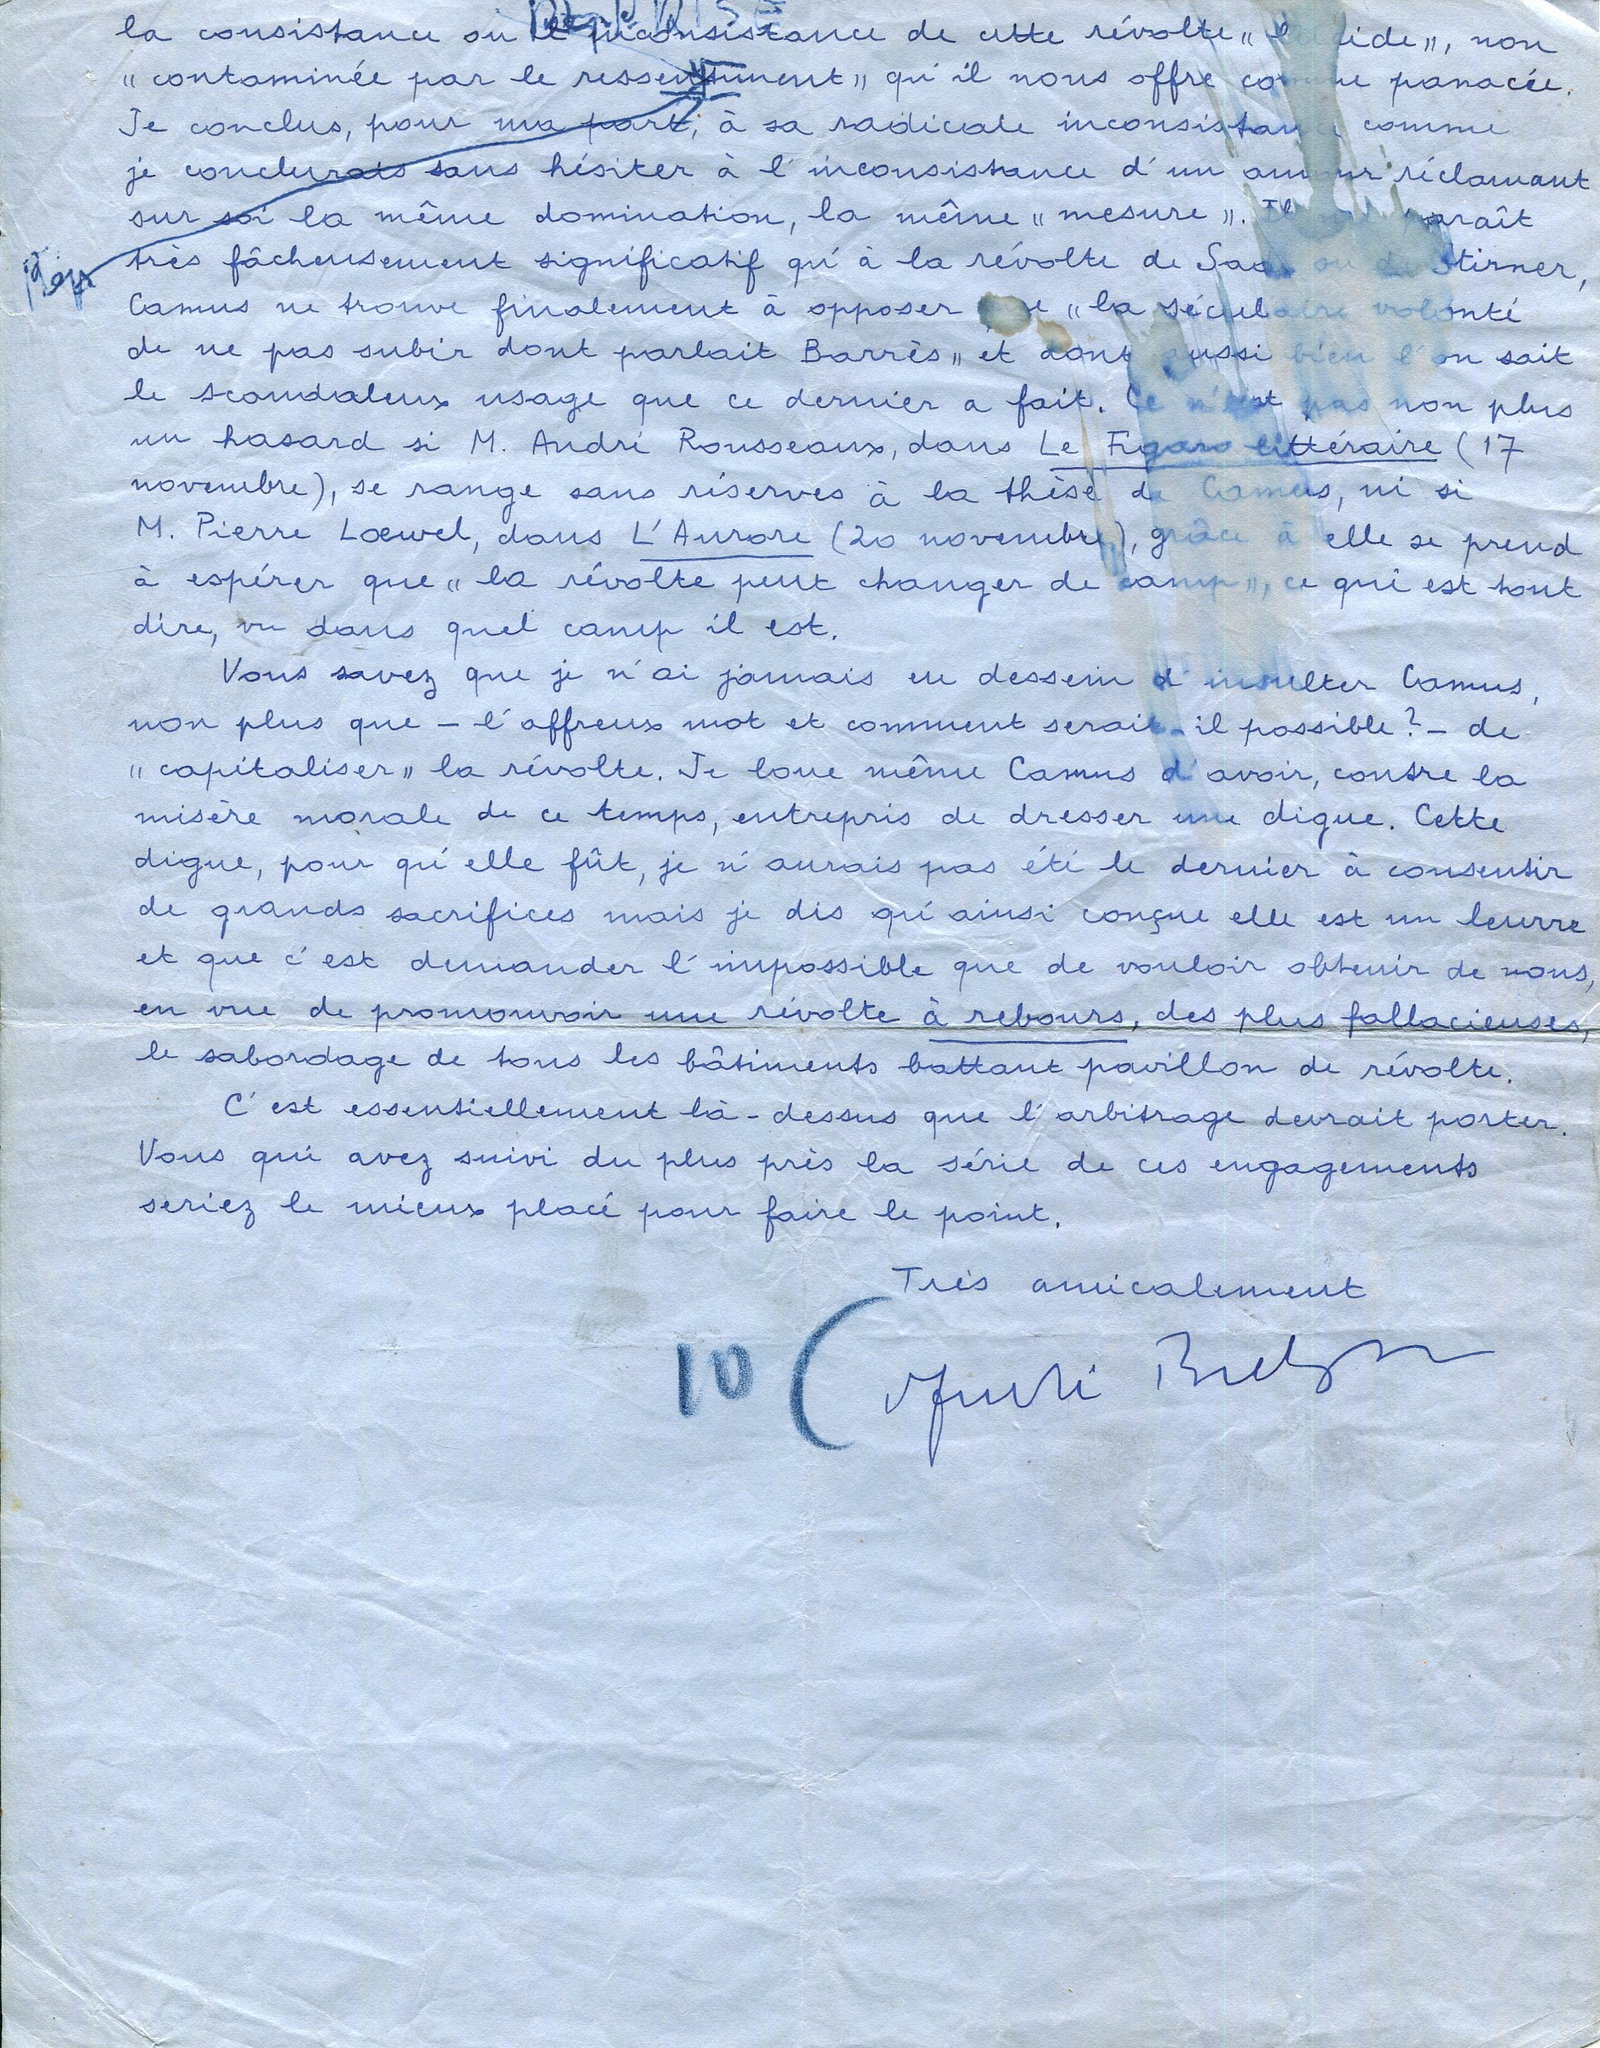 la consistance ou l'inconsistance de cette révolte « », non
« contaminée par le ressentiment » qu'il nous offre comme panacée.
Je conclus, pour ma part, à sa radicale inconsistance comme
je conclurais sans hésiter à l'inconsistance d'un amour réclamant
sur soi la même domination, la même « mesure ». Il paraît
très fâcheusement significatif qu'à la révolte de Sade ou de Stirner,
Camus ne trouve finalement à opposer que « la séculaire volonté
de ne pas subir dont parlait Barrès » et dont aussi bien l'on sait
le scandaleux usage que ce dernier a fait. Ce n'est pas non plus
un hasard si M. André Rousseaux, dans Le Figaro littéraire (17
novembre), se range sans réserves à la thèse de Camus, ni si
M. Pierre Lœwel, dans L'Aurore (20 novembre), grâce à elle se prend
à espérer que « la révolte peut changer de camp », ce qui est tout
dire, vu dans quel camp il est.
Vous savez que je n'ai jamais eu dessein d'insulter Camus,
non plus que – l'affreux mot et comment serait-il possible ? – de
« capitaliser » la révolte. Je loue même Camus d'avoir, contre la
misère morale de ce temps, entrepris de dresser une digue. Cette
digue, pour qu'elle fût, je n'aurais pas été le dernier à consentir
de grands sacrifices mais je dis qu'ainsi conçue elle est un leurre
et que c'est demander l'impossible que de vouloir obtenir de nous,
en vue de promouvoir une révolte à rebours, des plus fallacieuses,
le sabordage de tous les bâtiments battant pavillon de révolte.
C'est essentiellement là-dessus que l'arbitrage devrait porter.
Vous qui avez suivi du plus près la série de ces engagements
seriez le mieux placé pour faire le point.
Très amicalement
10 (
André Breton